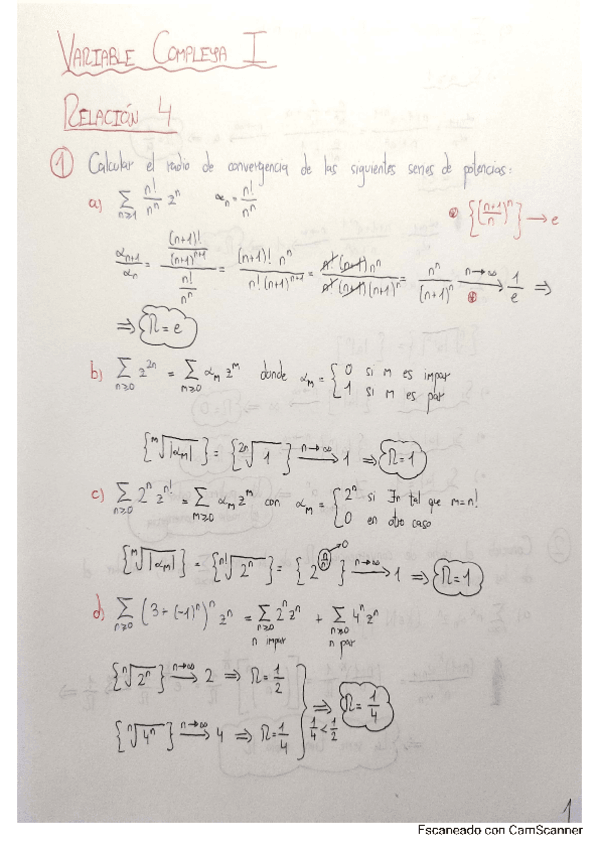 VARIABLE COMPLEJA I
RELACIÓN 4
① Calcular el radio de convergencia de las siguientes series de potencias:
a) ∑_{n≥1} n!/n^n z^n   α_n = n!/n^n   ⊛ {((n+1)/n)^n} → e
α_{n+1}/α_n = ((n+1)!/(n+1)^{n+1})/(n!/n^n) = (n+1)! n^n/(n!(n+1)^{n+1}) = n!(n+1)n^n/(n!(n+1)(n+1)^n) = n^n/(n+1)^n →^{n→∞}_{⊛} 1/e ⇒
⇒ R = e
b) ∑_{n≥0} z^{2n} = ∑_{m≥0} α_m z^m donde α_m = { 0 si m es impar
1 si m es par
{ᵐ√|α_m|} = {²ⁿ√1} →^{n→∞} 1 ⇒ R = 1
c) ∑_{n≥0} 2^n z^{n!} = ∑_{m≥0} α_m z^m con α_m = { 2^n si ∃n tal que m=n!
0 en otro caso
{ᵐ√|α_m|} = {ⁿ!√2^n} = {2^{n/n!}} →^{n→∞} 1 ⇒ R = 1
→0
d) ∑_{n≥0} (3+(-1)^n)^n z^n = ∑_{n≥0} 2^n z^n + ∑_{n≥0} 4^n z^n
n impar n par
{ⁿ√2^n} →^{n→∞} 2 ⇒ R = 1/2
⇒ R = 1/4
1/4 < 1/2
{ⁿ√4^n} →^{n→∞} 4 ⇒ R = 1/4
1
Escaneado con CamScanner